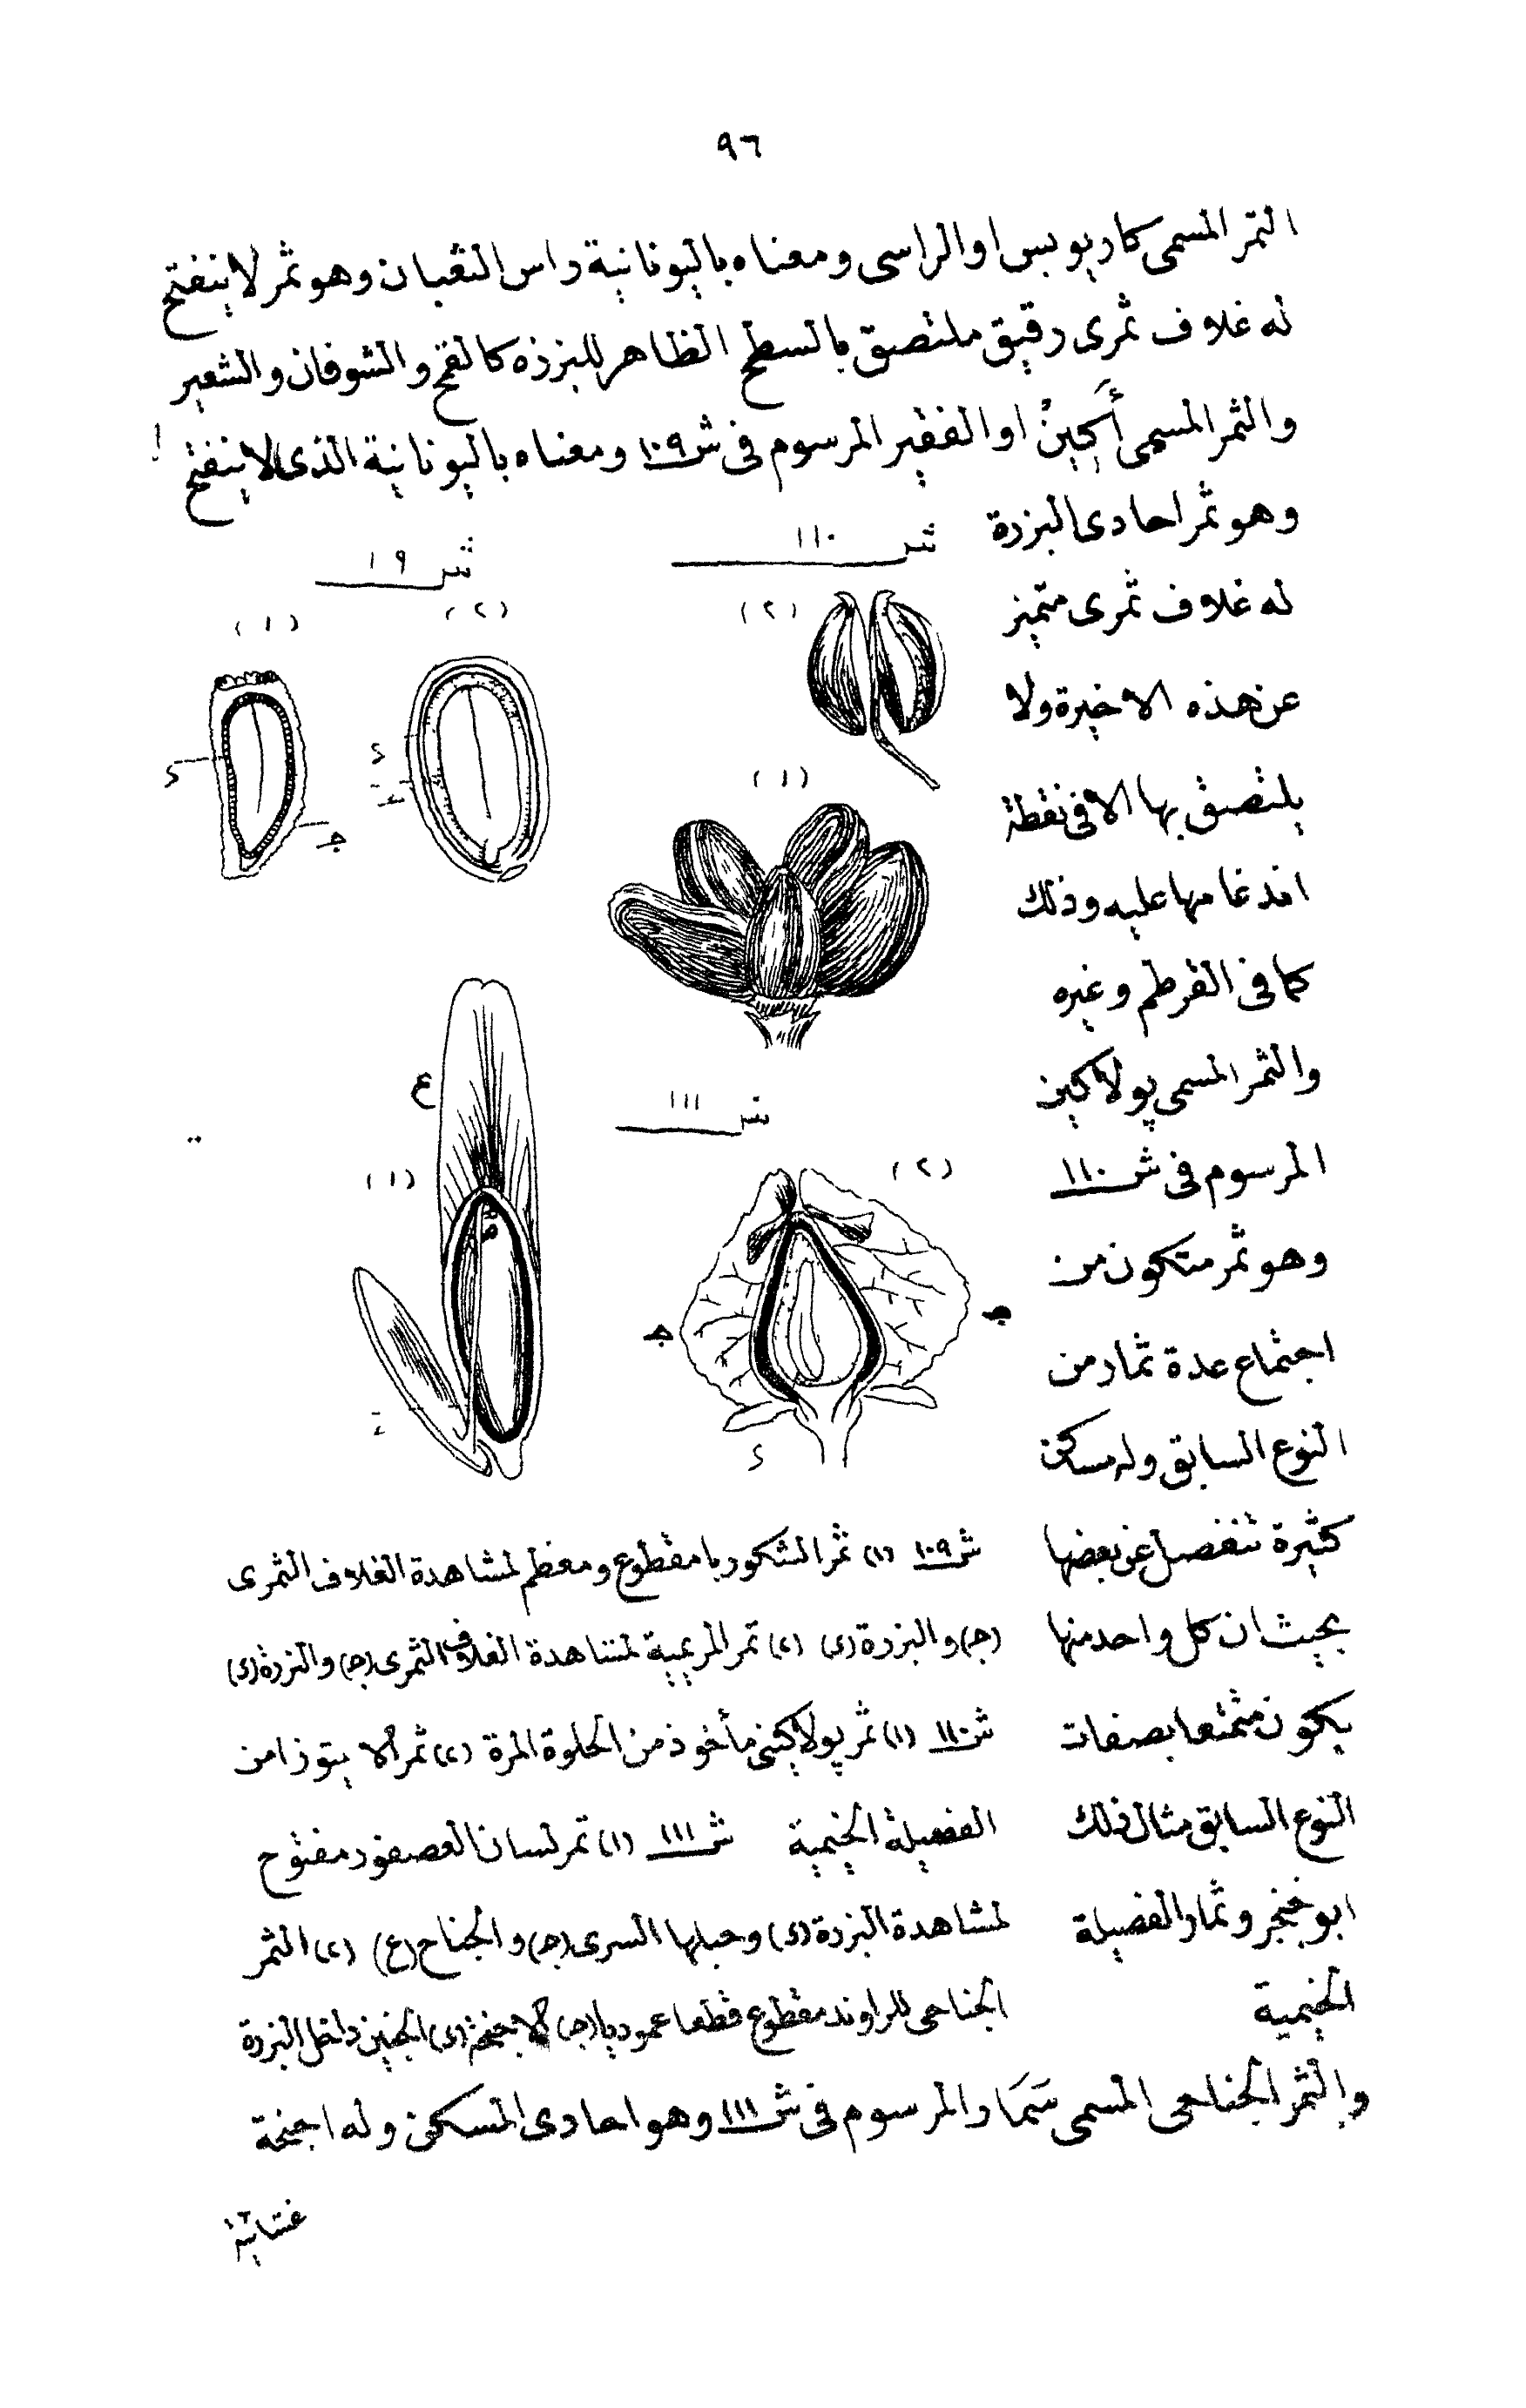 ٩٦
الثمر المسمى كاريوبس او الراسى ومعناه باليونانية راس الثعبان وهو ثمر لا ينفتح
له غلاف ثمرى رقيق ملتصق بالسطح الظاهر للبزره كالقمح والشوفان والشعير
والثمر المسمى أَكِينْ او الفقير المرسوم فى ش ١٠٩ ومعناه باليونانية الذى لا ينفتح
وهو ثمر احادى البزرة
له غلاف ثمرى متميز
عن هذه الاخيرة ولا
يلتصق بها الا فى نقطة
اندغامها عليه وذلك
كما فى القرطم وغيره
والثمر المسمى پولاكين
المرسوم فى ش ١١٠
وهو ثمر متكون من
اجتماع عدة ثمار من
النوع السابق وله مساكن
كثيرة تنفصل عن بعضها
بحيث ان كل واحد منها
يكون متمتعا بصفات
النوع السابق مثال ذلك
ابو خنجر وثمار الفصيلة
الخيمية
ش ١١٠
ش ١٠٩
(٢)
(١)
(٢)
(١)
د
ج
د
ش ١١١
(٢)
(١)
ع
ج
ج
د
ش ١٠٩ (١) ثمر الشكوريا مقطوع ومعظم لمشاهدة الغلاف الثمرى
(ج) والبزرة (د) (٢) ثمر المريمية لمشاهدة الغلاف الثمرى (ج) والبزرة (د)
ش ١١٠ (١) ثمر پولاكينى مأخوذ من الحلوة المرة (٢) ثمر الايتوزا من
الفصيلة الخيمية ش ١١١ (١) ثمر لسان العصفور مفتوح
لمشاهدة البزرة (د) وحبلها السرى (ج) والجناح (ع) (٢) الثمر
الجناحى للراوند مقطوع قطعا عموديا (ج) الاجنحة (د) الجنين داخل البزرة
والثمر الجناحى المسمى سَمَار المرسوم فى ش ١١١ وهو احادى المسكن وله اجنحة
غشائية